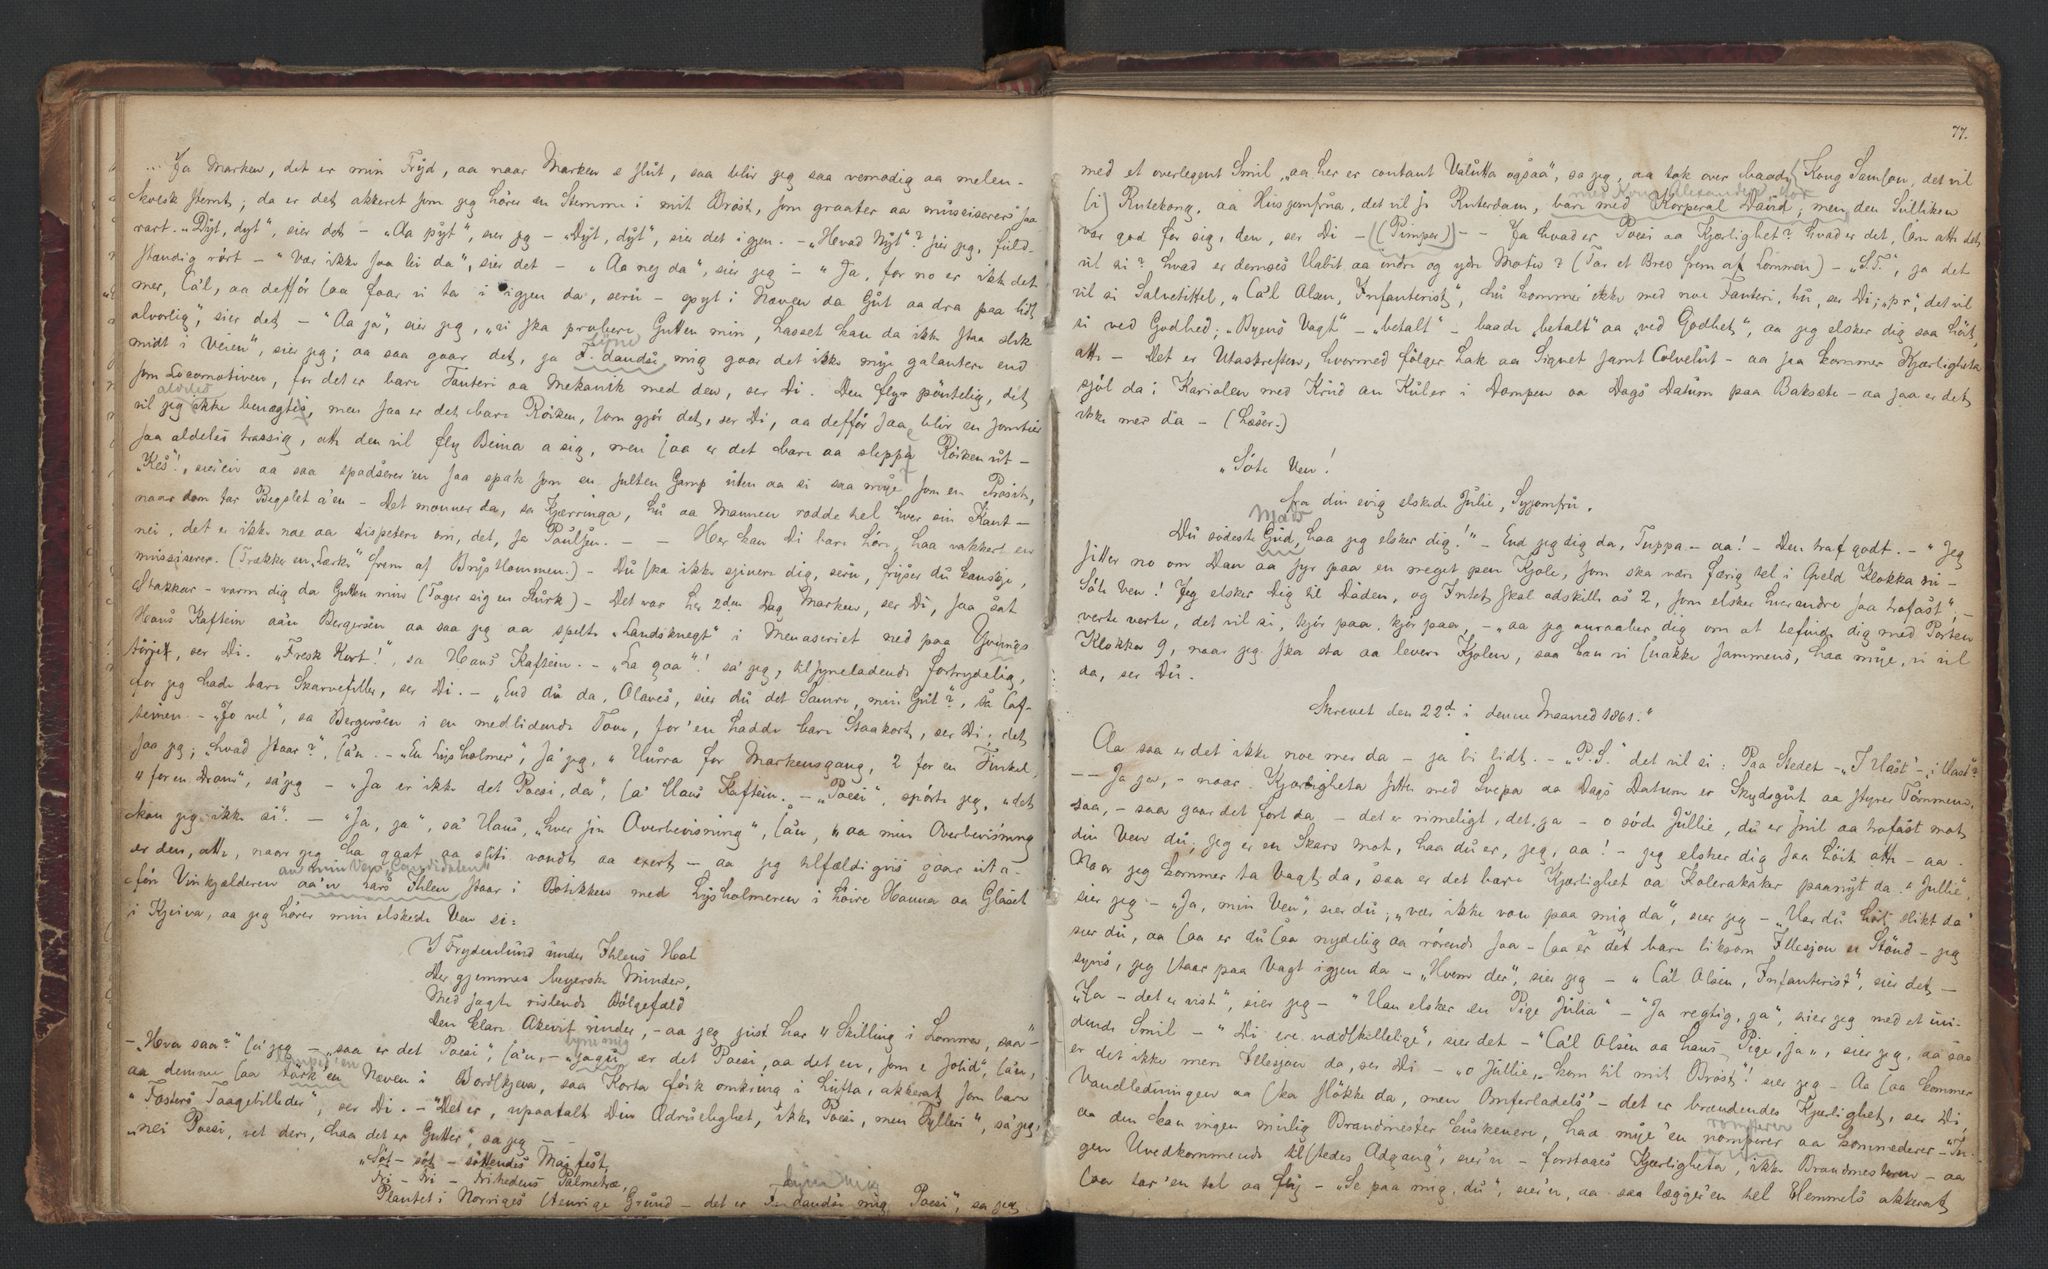 ... Ja Marken, det er min Fryd, aa naar Marken e slut, saa blir jeg saa vemodig aa melen-
kolsk stemt; da er det akkeret som jeg hører en Stemme i mit Brøst, som graater aa mussiserer saa
rart. „Dyt, dyt“, sier det – „Aa pyt“, sier jeg – „Dyt, dyt“, sier det igjen. – „Hevad Nyt“? sier jeg, fuld-
stændig rört – „Vær ikke saa lei da“, sier det – „Aa nej da“, sier jeg – „Ja, for no er ikke det
mer, Ca'l, aa defför saa faar vi ta i igjen da, serü – spyt i Næven da Gut aa dra paa lidt
alvorlig“, sier det – „Aa ja“, sier jeg, „vi ska probere, Gutten min, Lasset kan da ikke staa slik
midt i Veien“, sier jeg; aa saa gaar det, ja F. dandse mig gaar det ikke mye galantere end
som Locomotiven, for det er bare Fanteri aa Mekanik med den, ser Di. Den flyr pöntelig, det
vil jeg ikke benægte, men saa er det bare Röiken, som gjör det, ser Di, aa defför saa blir en somtier
aldeles
saa aldeles trassig, att den vil fly Beina a sig, men saa er det bare aa sleppe Röiken ut –
„Kes“!, sier'en aa saa spadserer'en saa spak som en sulten Gamp uten aa si saa mye som en Prosit,
naar dom tar Begslet a'en – Det monner da, sa Kjærringa, hu aa Mannen rodde hel hver sin Kant –
nei, det er ikke noe aa dispetere om, det, sa Paulsen. – – Her kan Di bare höre, haa vakkert en
mussiserer. (Trækker en „Lærke“ frem af Brystlommen.) – Du ska ikke sjenere dig, serü, fryser du kanskje,
Stakkar – varm dig da Gutten min (Tager sig en Slurk) – Det var her 2den Dag Marken, ser Di, saa sat
Hans Kaftein aa'n Bergersen aa saa jeg aa spelte „Landsknegt“ i Menaseriet ned paa Youngs
törjet, ser Di. „Fresk Kort“!, sa Hans Kaftein. – „La gaa“! sa' jeg, tilsyneladende fortrydelig,
for jeg hade bare Skarvefiller, ser Di. – „End du da, Olaves, sier du det Samme, min Gut“?, sa Caf-
teinen. – „Jo vel“, sa Bergersen i en medlidende Tone, for'en hadde bare Staakort, ser Di; det
saa jeg; „hvad staar“?, sa'n. – „En Lysholmer“, sa jeg, „Hurra for Markensgang, 2 for en Finkel,
4 for en Dram“, sa'jeg – „Ja er ikke det Poesi, da“, sa' Hans Kaftein. – „Poesi“, spørte jeg, „det
kan jeg ikke si“. – „Ja, ja“, sa' Hans, „hver sin Overbevisning“, sa'n, „aa min Overbevisning
er den, att, naar jeg ha gaat aa sliti vondt aa exert – aa jeg tilfældigvis gaar uta-
an min Ven „Candidaten“
for Vinkjælderen aa'n Lars Ihlen staar i Botikken med Lysholmeren i höire Hanna aa Glaset
i Kjeiva, aa jeg hører min elskede Ven si:
I Frydenlund under Ihlens Hal
Der gjemmes beyerske Minder,
Med sagte rislende Bölgefald
Den klare Akevit rinder, – aa jeg just har 4 Skilling i Lommen, saa –
– „Hva saa“? sa' jeg – „saa er det Poesi“, sa'n, – „saagu er det Poesi, aa det en, som e solid“, sa'n,
aa dermed saa törk'en Næven i Bordskjeva, saa Korta föik omkring i Lufta, akkerat som bare
„Fosters Taagebilleder“, ser Di. – „Det er, upaatalt Din Ædruelighet, ikke Poesi, men Fylleri“, sa'jeg,
„nei Poesi, vet dere, haa det er Gutter“, sa jeg – –
„Söt – söt – söttendes Mai fest,
Fri – Fri – Frihedens Palmetræ,
Plantet i Norriges stenrige Grund – det er F. dandse mig Poesi“, sa jeg
77.
med et overlegent Smil, „aa her er contant Valutta også“, sa jeg, aa tok over baade Kong Samson, det vil
si Rutekong, aa Husjomfrua, det vil si Ruterdam, bare med Korperal David; men den Sulliken
var god for sig, den, ser Di – (Pimper) – – Ja hvad er Poesi aa Kjærlighet? hvad er det, som att det
vil si? hvad er dernæs Habit aa indre og ydre Motiv? (Tar et Brev frem af Lommen) – „S. T.“, ja det
vil si Salvetittel, „Ca'l Olsen, Infanterist“, hu kommer ikke med noe Fanteri, hu, ser Di; „pr“, det vil
si ved Godhed; „Byens Vagt“ – „betalt“ – baade „betalt“ aa „ved Godhet“, aa jeg elsker dig saa höit,
att – Det er Utaskreften, hvormed fölger Lak aa Signet samt Colvelut – aa saa kommer Kjærligheta
sjöl da i Kariolen med Krud an Kuler i Dampen aa Dags Datum paa Baksæte – aa saa er det
ikke mer da – (Læser.)
„Söte Ven!
fra din evig elskede Julie, Syjomfru.
Du sødeste Gud, haa jeg elsker dig!“ – End jeg dig da, Tuppa – aa! – Den traf godt. – „Jeg
sitter no om Dan aa syr paa en meget pen Kjole, som ska være færig tel i Qveld Klokka ni –
Söte Ven! Jeg elsker Dig til Döden, og Intet skal adskille os 2, som elsker hverandre saa trofast“, –
verte verte, det vil si, kjör paa, kjör paa, – „aa jeg anraaber dig om at befinde dig med Porten
Klokka 9, naar jeg ska sta aa levere Kjolen, saa kan vi snakke sammens, haa mye, vi vil
da, ser Du.
Skrevet den 22de i denne Maaned 1861.“
Aa saa er det ikke noe mer da – ja bi lidt. – „P.S.“ det vil si: Paa Stedet – „I Hast“ – i Hast?
– – Ja ja, – naar Kjærligheta sitter med Svepa aa Dags Datum er Skydsgut aa styrer Tömmene,
saa, – saa gaar det fort da – det er rimeligt, det, ja – o søde Jullie, du er snil aa trofast mot
din Ven du, jeg er en Skarv mot, haa du er, jeg, aa! – jeg elsker dig saa höit att – aa –
Naar jeg kommer ta Vagt da, saa er det bare Kjærlighet aa Kolerakaker paanyt da. „Jullie“,
sier jeg – „Ja, min Ven“, sier du; „vær ikke von paa mig da“, sier jeg – „Har du hört slikt da“
sier du, aa saa er du saa nydelig aa rörende saa – saa er det bare liksom Illesjon en Stönd – jeg
synes, jeg staar paa Vagt igjen da – „Hvem der“, sier jeg – „Ca'l Olsen, Infanterist“, sier det –
„Ja – det er vist“, sier jeg – „Han elsker en Pige Julia“ – „Ja regtig, ja“, sier jeg med et ini-
dende Smil – „Di ere uadskillelige“, sier det – „Ca'l Olsen aa hans Pige, ja“, sier jeg, aa saa
er det ikke mere Illesjon da, ser Di – „o Jullie, kom til mit Bröst“! sier jeg – Aa saa kommer
Vandledningen aa ska sløkke da, men Omforladels' – det er brændendes Kjærlighet, ser Di,
aa den kan ingen mulig Brandmester beskenere, haa mye'en romsterer aa kommederer – „In-
gen Uvedkommende tilstedes Adgang“, sier'n – forstaaes Kjærligheta, ikke Brandmesteren – aa
saa tar'en tel aa fly – „Se paa mig, du“, sier'n, aa saa lægger'en tel Hemmels akkerat